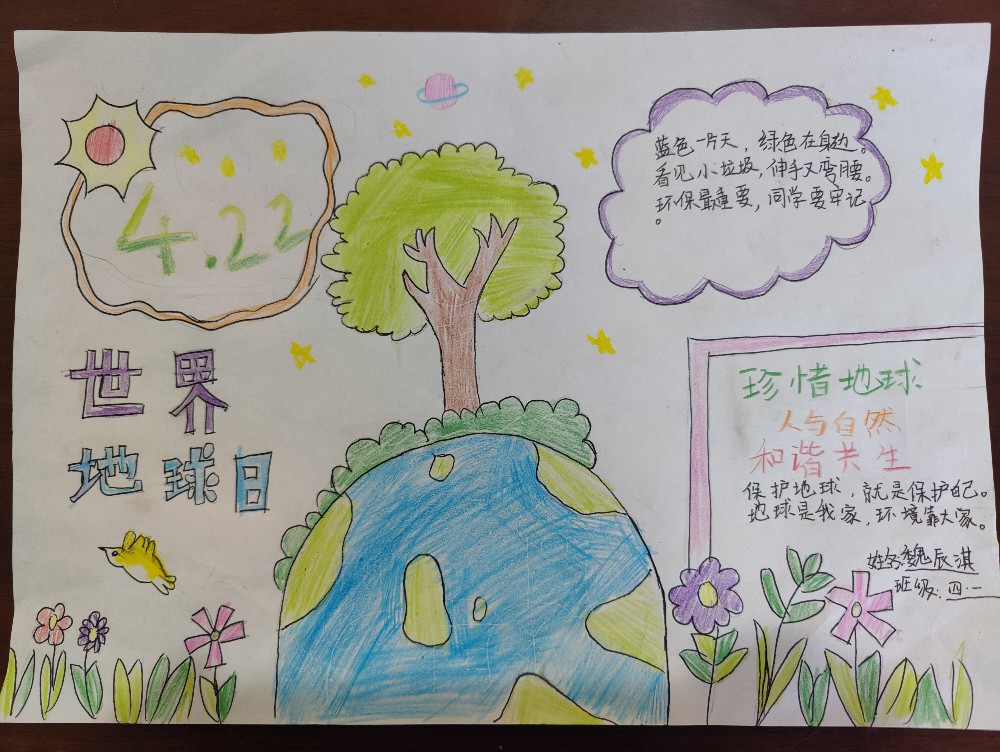 4.22
世界
地球日
蓝色一片天，绿色在身边。
看见小垃圾，伸手又弯腰。
环保最重要，同学要牢记
。
珍惜地球
人与自然
和谐共生
保护地球，就是保护自己。
地球是我家，环境靠大家。
姓名:魏辰淇
班级:四·一